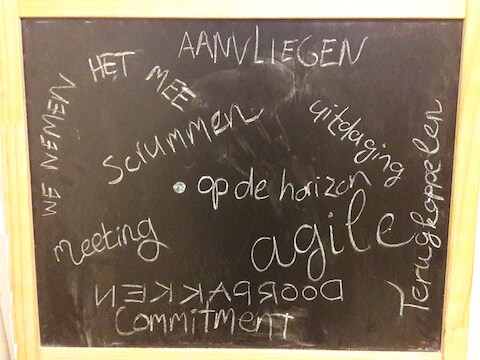 AANVLIEGEN
WE NEMEN HET MEE
scrummen
uitdaging
Terugkoppelen
op de horizon
meeting
agile
DOORPAKKEN
COMMITMENT